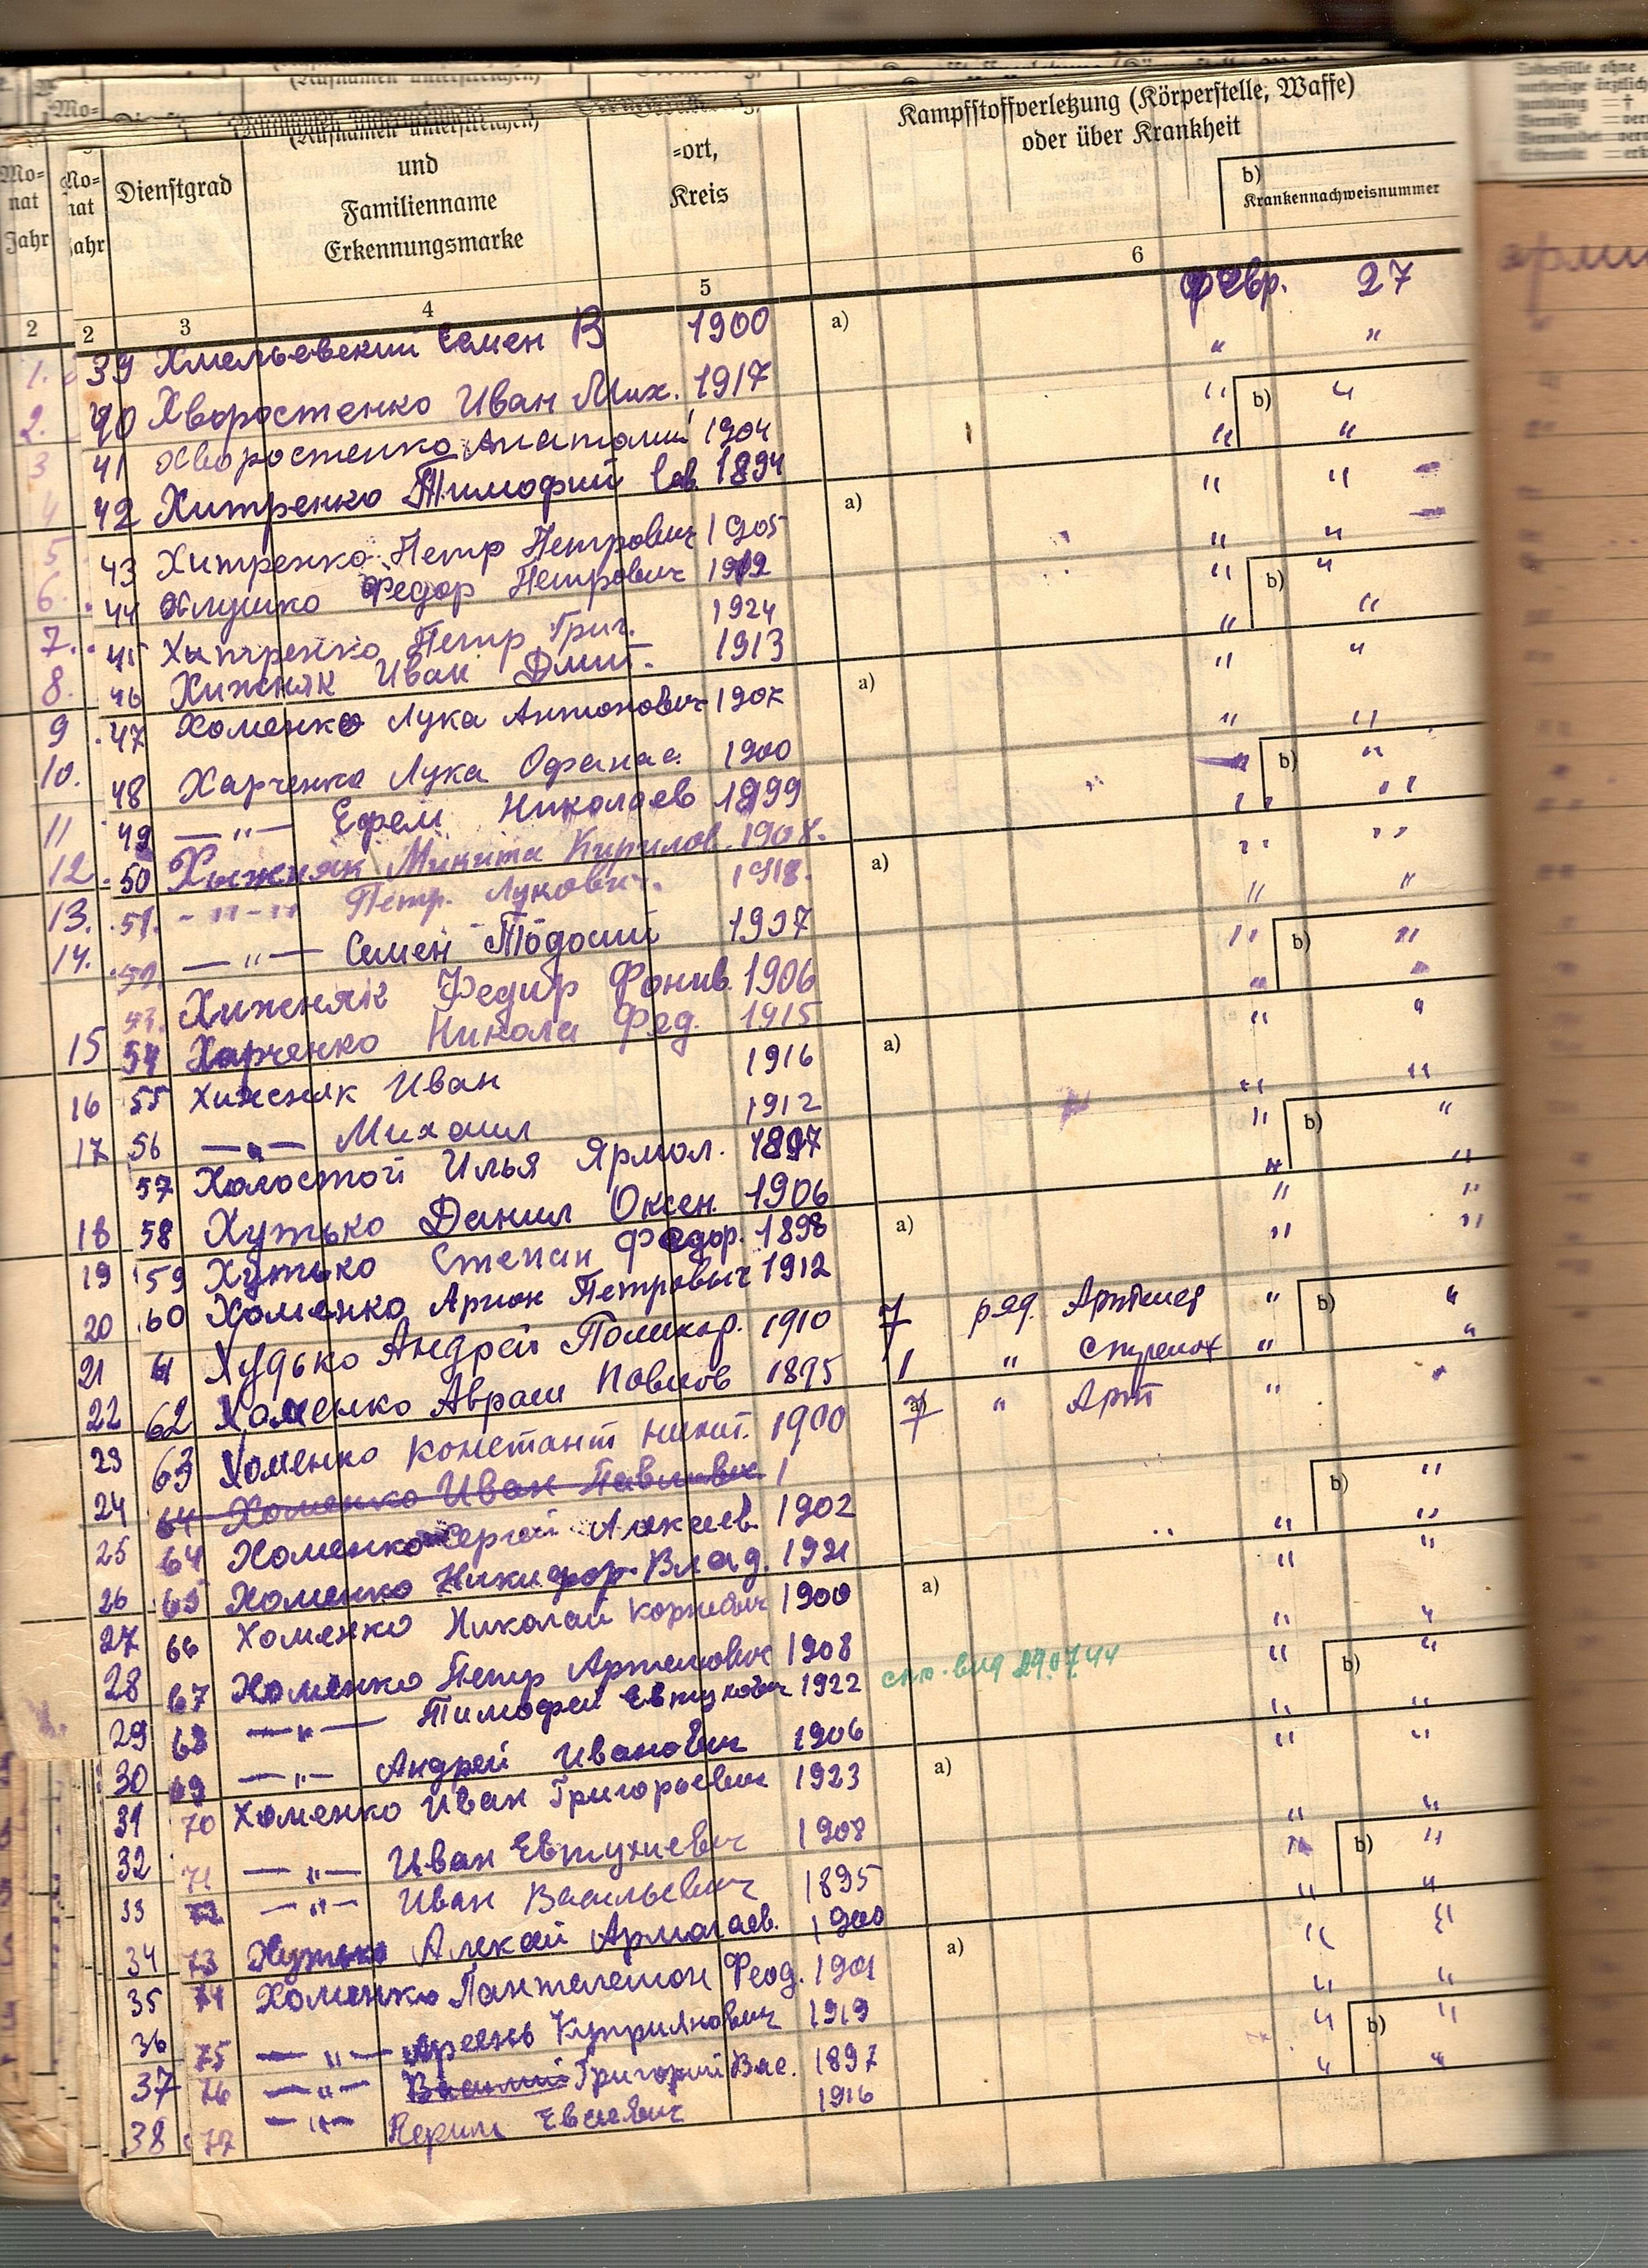 (Rufnamen unterstreichen)
Kampfstoffverletzung (Körperstelle, Waffe)
oder über Krankheit
Mo-
nat
Jahr
Dienstgrad
und
Familienname
Erkennungsmarke
=ort,
Kreis
b)
Krankennachweisnummer
2 2 3 4 5 6
39 Хмельевский Семен В 1900 а) февр. 27
40 Хворостенко Иван Мих. 1917 " "
41 Хворостенко Анатолий 1904 " b) "
42 Хитренко Тимофий Сав 1894 " "
43 Хитренко Петр Петрович 1905 a) " "
44 Хлушко Федор Петрович 1912 " "
45 Хитренко Петр Григ. 1924 " b) "
46 Хижняк Иван Дмит. 1913 " "
47 Хоменко Лука Антонович 1907 a) " "
48 Харченко Лука Офанас. 1900 " "
49 —"— Ефрем Николаев 1899 b) "
50 Хыжняк Микита Кирилов. 1908. " "
51. -"-" Петр. Лукович. 1918. a) " "
—"— Семен Тодосий 1907 " "
53. Хижняк Федир Фонив. 1906 " b) "
54 Харченко Никола Фед. 1915 " "
55 Хижняк Иван 1916 a) " "
56 —"— Михаил 1912 " "
57 Холостой Илья Ярмол. 1897 " b) "
58 Хутько Данил Оксен. 1906 " "
59 Хутько Степан Федор. 1898 a) " "
60 Хоменко Арион Петрович 1912 " "
61 Худько Андрей Поликар. 1910 7 ряд. " b) "
62 Хоменко Аврам Павлов 1895 1 " "
63 Хоменко Констант Никит. 1900 7 " Арт " "
64 Хоменко Иван Павлович 1
64 Хоменко Сергей Алексеев. 1902 " b) "
65 Хоменко Никифор. Влад. 1921 " "
66 Хоменко Николай Корнеевич 1900 a) " "
67 Хоменко Петр Артемович 1908 " "
68 —"— Тимофей Евтухович 1922 29.07.44 " b) "
69 —"— Андрей Иванович 1906 " "
70 Хоменко Иван Григорьевич 1923 a) " "
71 —"— Иван Евтухиевич 1908 " "
72 —"— Иван Васильевич 1895 " b) "
73 Хутько Алексей Армолаев. 1900 " "
74 Хоменко Пантелемон Феод. 1901 a) " "
75 —"— Арсень Куприянович 1919 " "
76 —"— Василий Григорий Вас. 1897 " b) "
77 —"— Евсеевич 1916 " "
1.
2.
3
4
5
6.
7.
8.
9
10.
11
12.
13.
14.
15
16
17
18
19
20
21
22
23
24
25
26
27
28
29
30
31
32
33
34
35
36
37
38